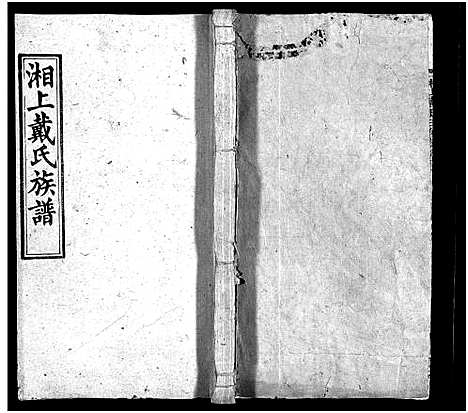 湘上戴氏族譜